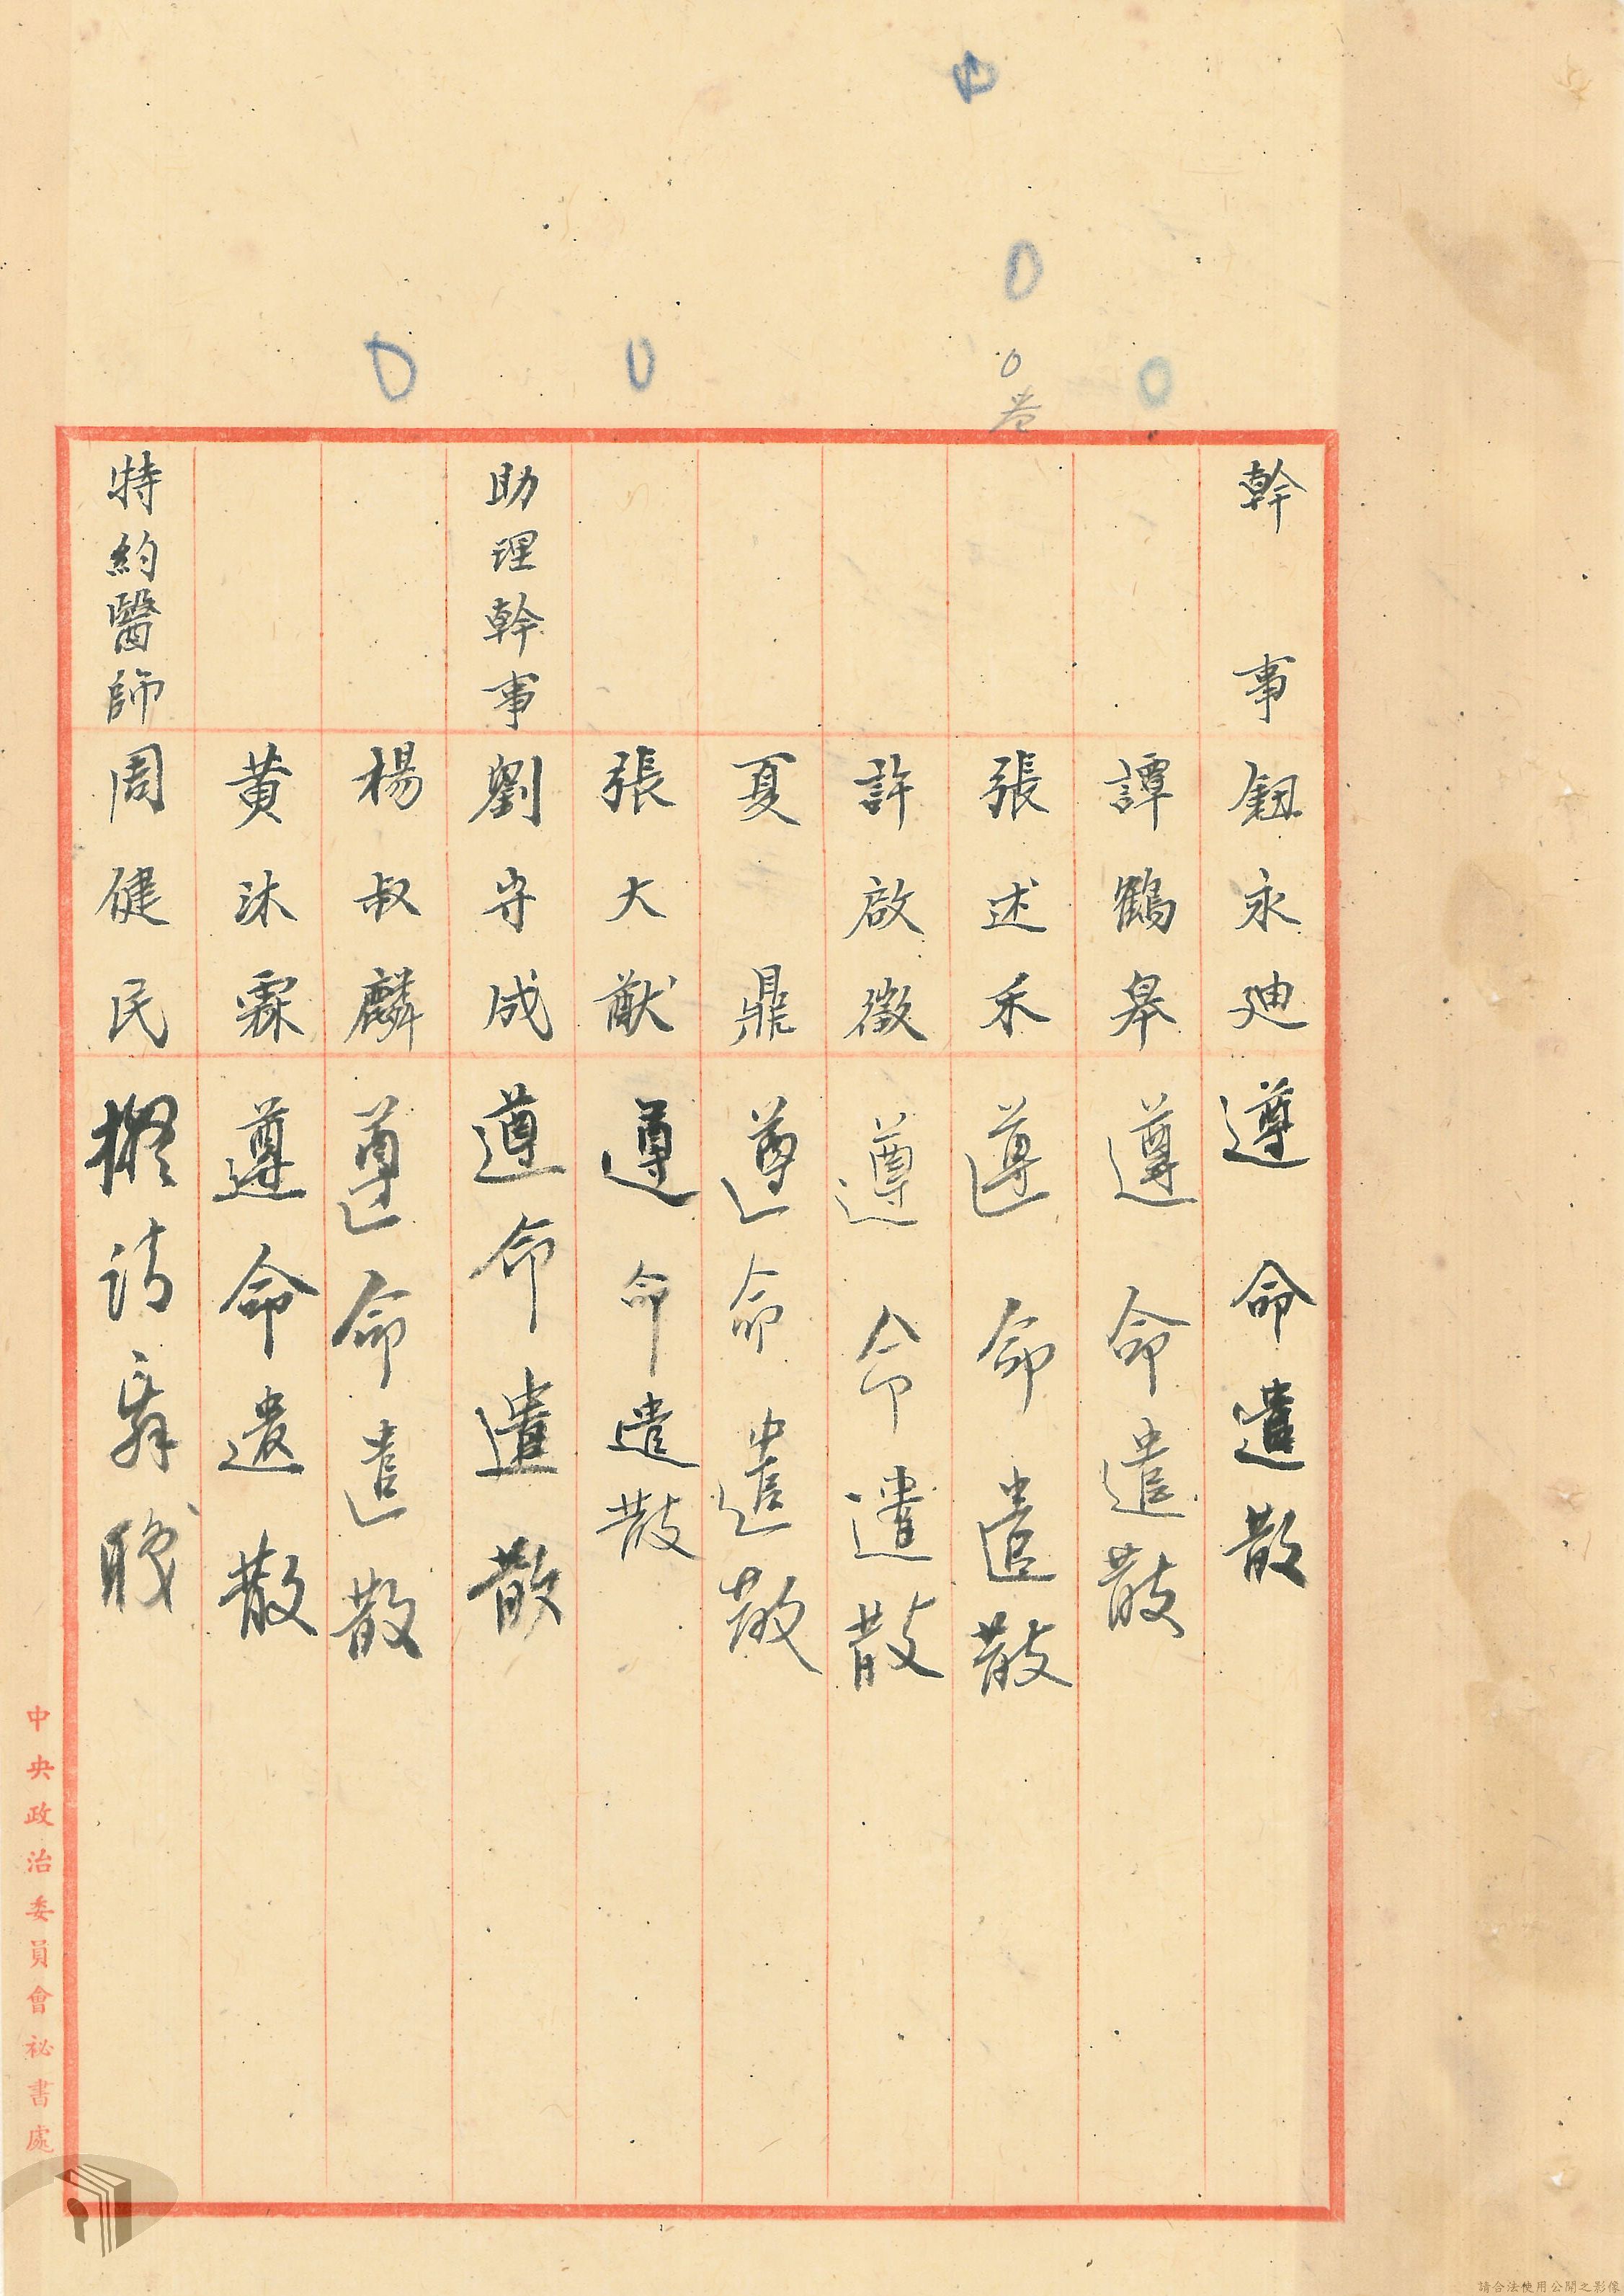 幹事 鈕永廸 遵命遣散
譚鶴皋 遵命遣散
張述禾 遵命遣散
許啟徵 遵命遣散
夏鼎 遵命遣散
張大猷 遵命遣散
助理幹事 劉守成 遵命遣散
楊叔麟 遵命遣散
黄沐霖 遵命遣散
特約醫師 周健民 擬請辭職
中央政治委員會祕書處
請合法使用公開之影像